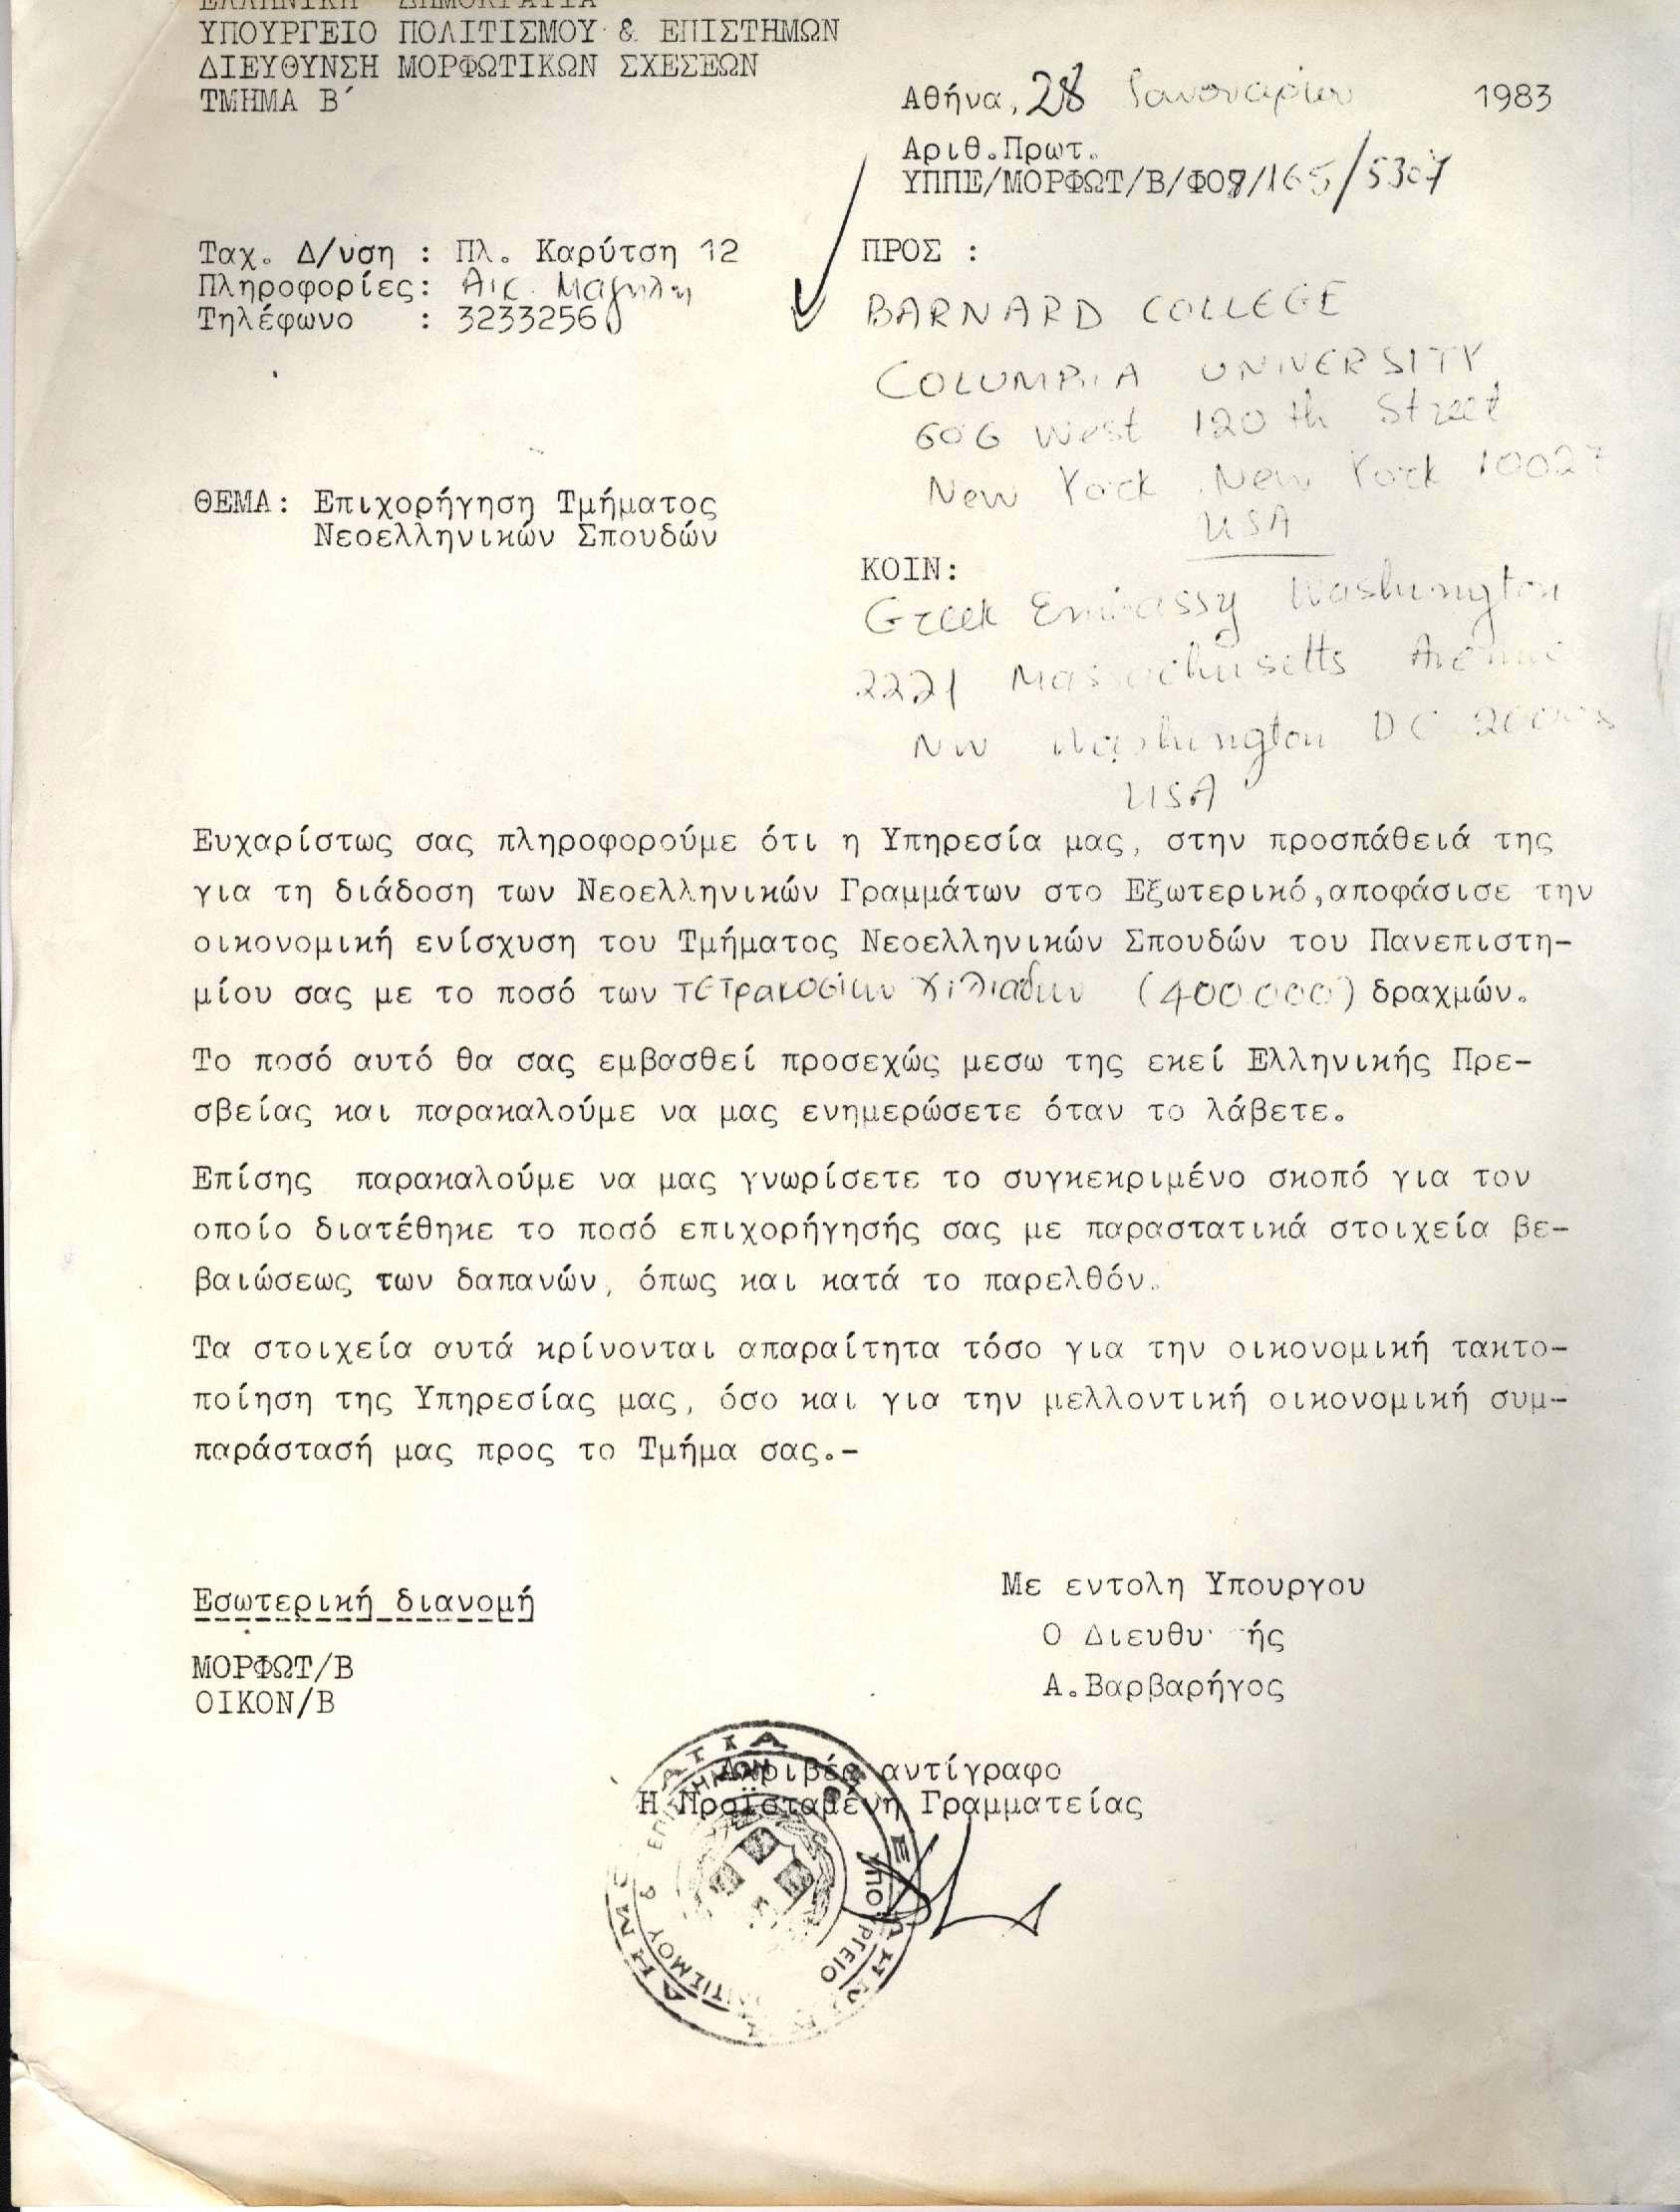 ΕΛΛΗΝΙΚΗ ΔΗΜΟΚΡΑΤΙΑ
ΥΠΟΥΡΓΕΙΟ ΠΟΛΙΤΙΣΜΟΥ & ΕΠΙΣΤΗΜΩΝ
ΔΙΕΥΘΥΝΣΗ ΜΟΡΦΩΤΙΚΩΝ ΣΧΕΣΕΩΝ
ΤΜΗΜΑ Β΄
Αθήνα, 28 Ιανουαρίου 1983
Αριθ.Πρωτ.
ΥΠΠΕ/ΜΟΡΦΩΤ/Β/Φ09/165/5307
Ταχ. Δ/νση : Πλ. Καρύτση 12
Πληροφορίες: Αικ.
Τηλέφωνο : 3233256
ΠΡΟΣ :
BARNARD COLLEGE
COLUMBIA UNIVERSITY
606 West 120th Street
New York, New York 10027
USA
ΘΕΜΑ: Επιχορήγηση Τμήματος
Νεοελληνικών Σπουδών
ΚΟΙΝ:
Greek Embassy Washington
2221 Massachusetts Avenue
NW Washington DC 20008
USA
Ευχαρίστως σας πληροφορούμε ότι η Υπηρεσία μας, στην προσπάθειά της
για τη διάδοση των Νεοελληνικών Γραμμάτων στο Εξωτερικό,αποφάσισε την
οικονομική ενίσχυση του Τμήματος Νεοελληνικών Σπουδών του Πανεπιστη-
μίου σας με το ποσό των τετρακοσίων χιλιάδων (400.000) δραχμών.
Το ποσό αυτό θα σας εμβασθεί προσεχώς μεσω της εκεί Ελληνικής Πρε-
σβείας και παρακαλούμε να μας ενημερώσετε όταν το λάβετε.
Επίσης παρακαλούμε να μας γνωρίσετε το συγκεκριμένο σκοπό για τον
οποίο διατέθηκε το ποσό επιχορήγησής σας με παραστατικά στοιχεία βε-
βαιώσεως των δαπανών, όπως και κατά το παρελθόν.
Τα στοιχεία αυτά κρίνονται απαραίτητα τόσο για την οικονομική τακτο-
ποίηση της Υπηρεσίας μας, όσο και για την μελλοντική οικονομική συμ-
παράστασή μας προς το Τμήμα σας.-
Με εντολη Υπουργου
Ο Διευθυ ής
Α.Βαρβαρήγος
Εσωτερική διανομή
ΜΟΡΦΩΤ/Β
ΟΙΚΟΝ/Β
Ακριβές αντίγραφο
Η Προϊσταμένη Γραμματείας